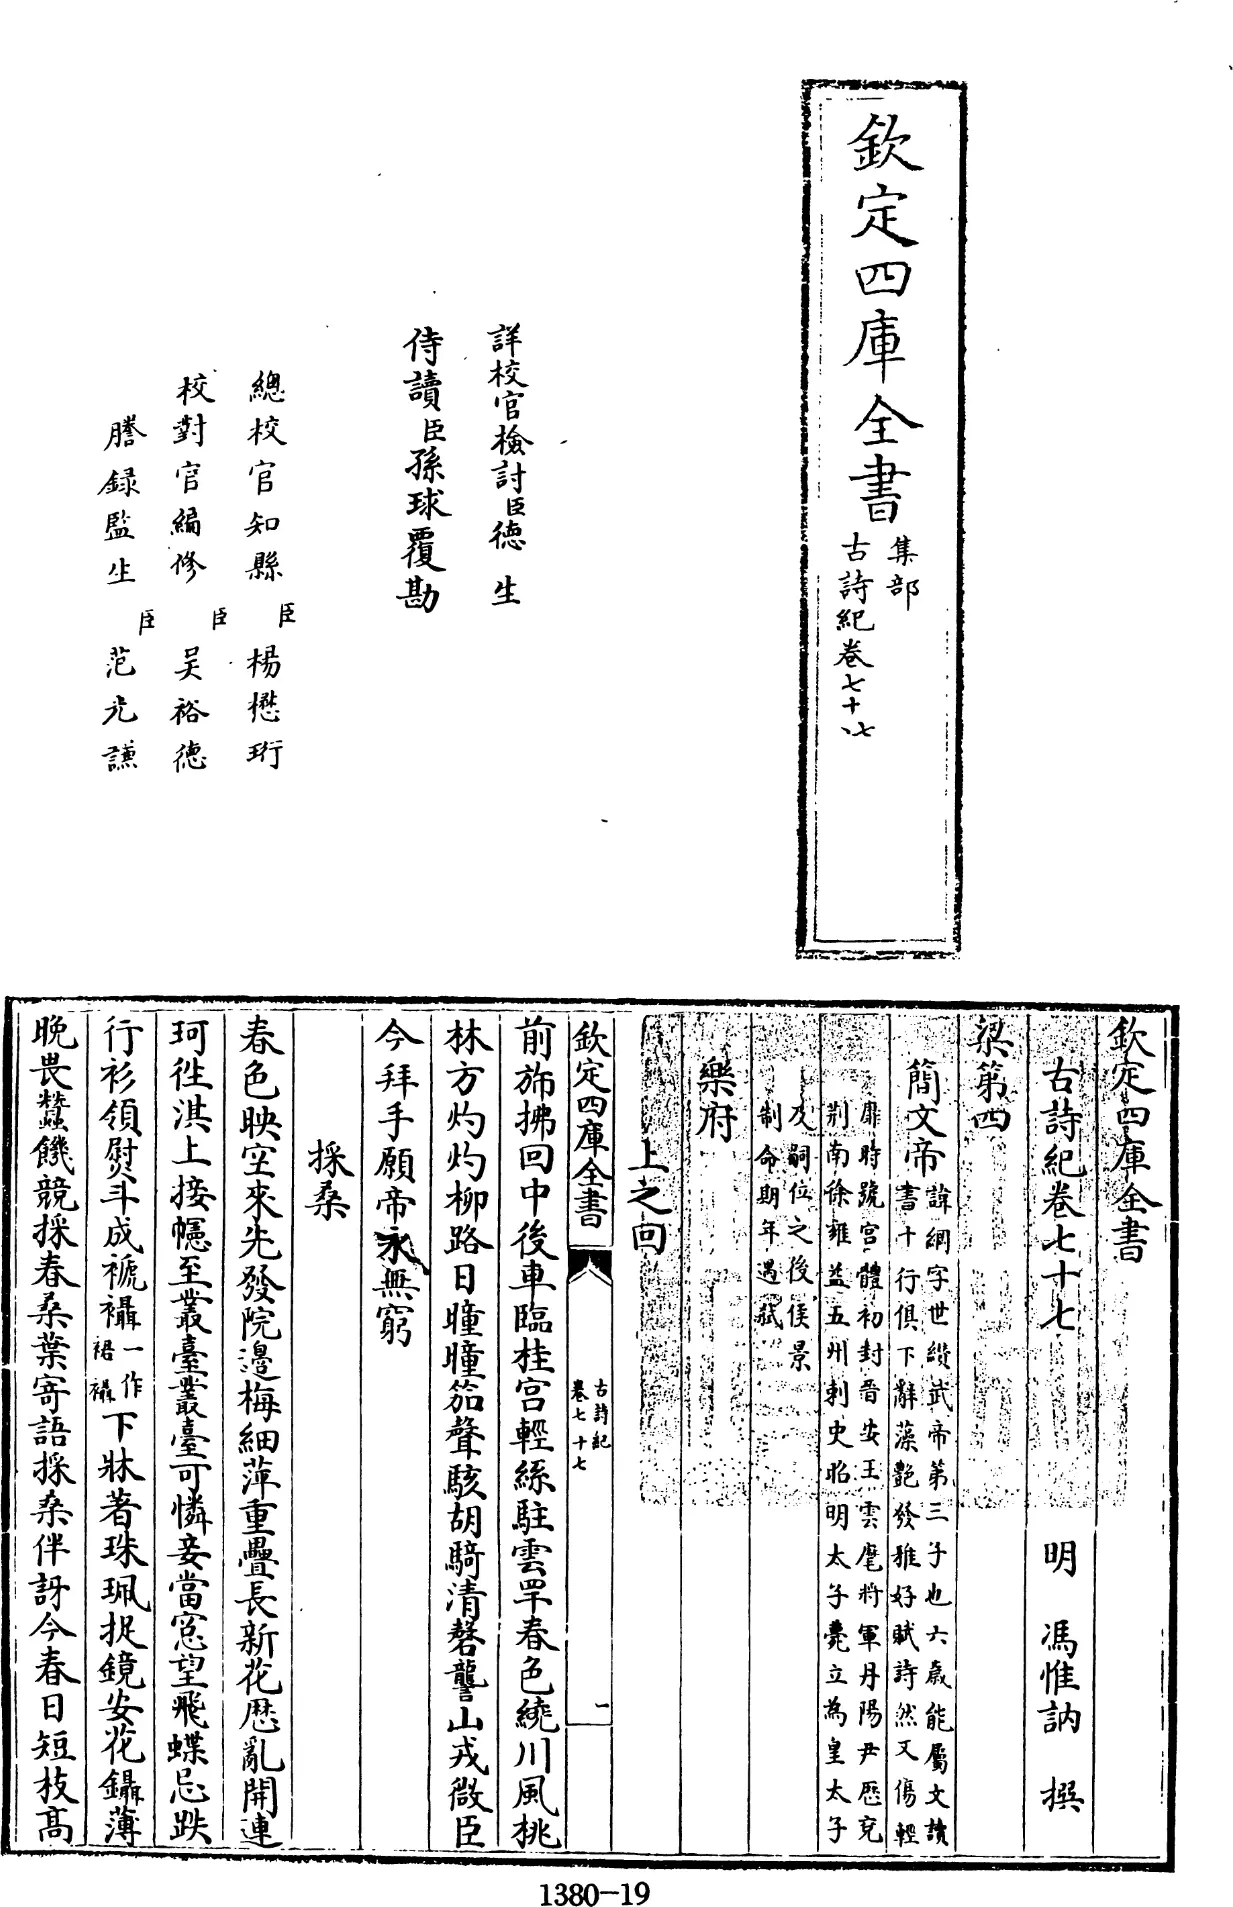 欽定四庫全書
集部
古詩紀卷七十七
詳校官檢討臣德生
侍讀臣孫球覆勘
總校官知縣臣楊懋珩
校對官編修臣吳裕德
謄錄監生臣范光謙
欽定四庫全書
古詩紀卷七十七 明 馮惟訥 撰
梁第四
簡文帝
諱綱字世纉武帝第三子也六歲能屬文讀
書十行俱下辭藻艷發雅好賦詩然文傷輕
靡時號宫體初封晉安王雲麾將軍丹陽尹歴兗
荆南徐雍益五州刺史昭明太子薨立為皇太子
及嗣位之後侯景
制命期年遇弑
樂府
上之回
欽定四庫全書
古詩紀
卷七十七
一
前斾拂回中後車臨桂宫輕絲駐雲罕春色繞川風桃
林方灼灼柳路日曈曈笳聲駭胡騎清磬讋山戎微臣
今拜手願帝永無窮
採桑
春色映空來先發院邊梅細萍重疊長新花歴亂開連
珂徃淇上接幰至叢臺叢臺可憐妾當窓望飛蝶忌趺
行衫領熨斗成褫襵
一作
褣襵
下牀著珠珮捉鏡安花鑷薄
晚畏蠶饑競採春桑葉寄語採桑伴訝今春日短枝髙
1380-19